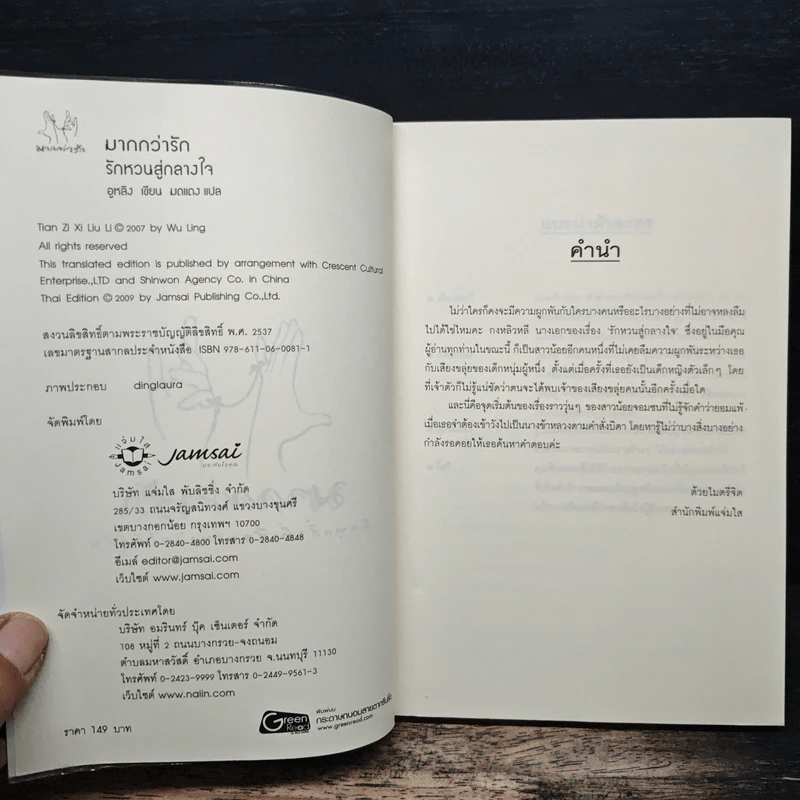 มากกว่ารัก
มากกว่ารัก
รักหวนสู่กลางใจ
อูหลิง เขียน มดแดง แปล
Tian Zi Xi Liu Li © 2007 by Wu Ling
All rights reserved
This translated edition is published by arrangement with Crescent Cultural
Enterprise.,LTD and Shinwon Agency Co. in China
Thai Edition © 2009 by Jamsai Publishing Co.,Ltd.
สงวนลิขสิทธิ์ตามพระราชบัญญัติลิขสิทธิ์ พ.ศ. 2537
เลขมาตรฐานสากลประจำหนังสือ ISBN 978-611-06-0081-1
ภาพประกอบ dinglaura
จัดพิมพ์โดย
แจ่มใส
Jamsai
Jamsai
บริษัท แจ่มใส พับลิชชิ่ง จำกัด
285/33 ถนนจรัญสนิทวงศ์ แขวงบางขุนศรี
เขตบางกอกน้อย กรุงเทพฯ 10700
โทรศัพท์ 0-2840-4800 โทรสาร 0-2840-4848
อีเมล์ editor@jamsai.com
เว็บไซต์ www.jamsai.com
จัดจำหน่ายทั่วประเทศโดย
บริษัท อมรินทร์ บุ๊ค เซ็นเตอร์ จำกัด
108 หมู่ที่ 2 ถนนบางกรวย-จงถนอม
ตำบลมหาสวัสดิ์ อำเภอบางกรวย จ.นนทบุรี 11130
โทรศัพท์ 0-2423-9999 โทรสาร 0-2449-9561-3
เว็บไซต์ www.naiin.com
ราคา 149 บาท
Green Read
พิมพ์บน
กระดาษถนอมสายตากรีนรี้ด
www.greenread.com
คำนำ
ไม่ว่าใครก็คงจะมีความผูกพันกับใครบางคนหรืออะไรบางอย่างที่ไม่อาจหลงลืม
ไปได้ใช่ไหมคะ กงหลิวหลี นางเอกของเรื่อง 'รักหวนสู่กลางใจ' ซึ่งอยู่ในมือคุณ
ผู้อ่านทุกท่านในขณะนี้ ก็เป็นสาวน้อยอีกคนหนึ่งที่ไม่เคยลืมความผูกพันระหว่างเธอ
กับเสียงขลุ่ยของเด็กหนุ่มผู้หนึ่ง ตั้งแต่เมื่อครั้งที่เธอยังเป็นเด็กหญิงตัวเล็กๆ โดย
ที่เจ้าตัวก็ไม่รู้แน่ชัดว่าตนจะได้พบเจ้าของเสียงขลุ่ยคนนั้นอีกครั้งเมื่อใด
และนี่คือจุดเริ่มต้นของเรื่องราววุ่นๆ ของสาวน้อยจอมซนที่ไม่รู้จักคำว่ายอมแพ้
เมื่อเธอจำต้องเข้าวังไปเป็นนางข้าหลวงตามคำสั่งบิดา โดยหารู้ไม่ว่าบางสิ่งบางอย่าง
กำลังรอคอยให้เธอค้นหาคำตอบค่ะ
ด้วยไมตรีจิต
สำนักพิมพ์แจ่มใส